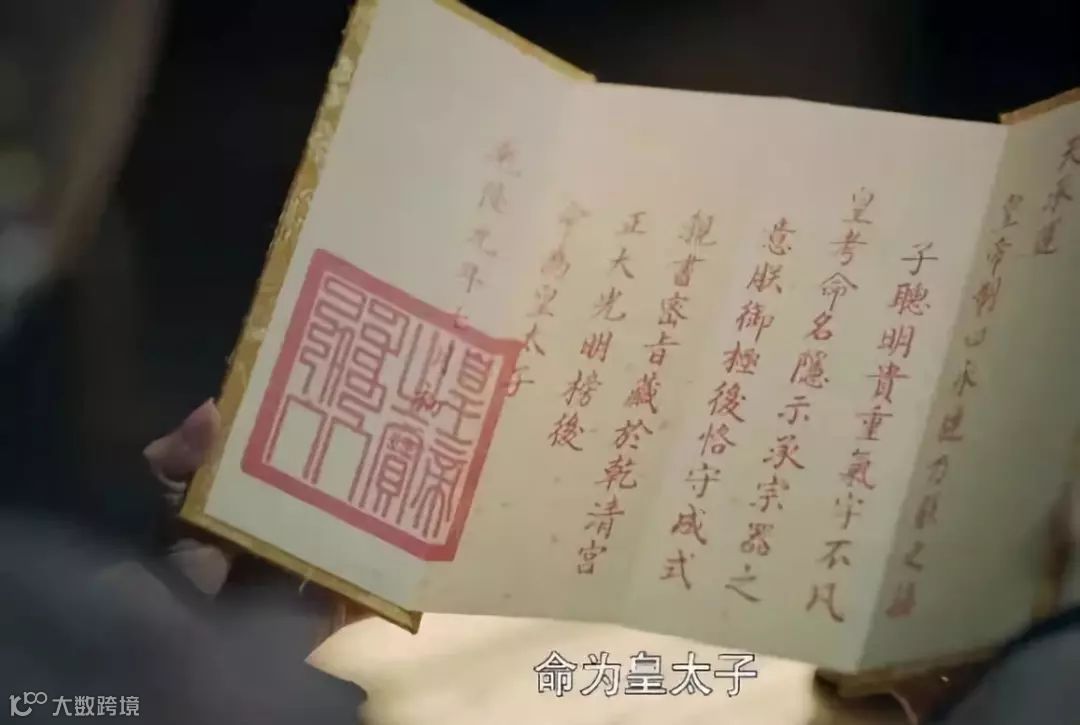 天承運
皇帝制曰永璉乃朕之嫡
子聰明貴重氣宇不凡
皇考命名隱示承宗器之
意朕御極後恪守成式
親書密旨藏於乾清宮
正大光明榜後
命為皇太子
乾隆元年七月初
皇帝之寶
命为皇太子
大数跨境